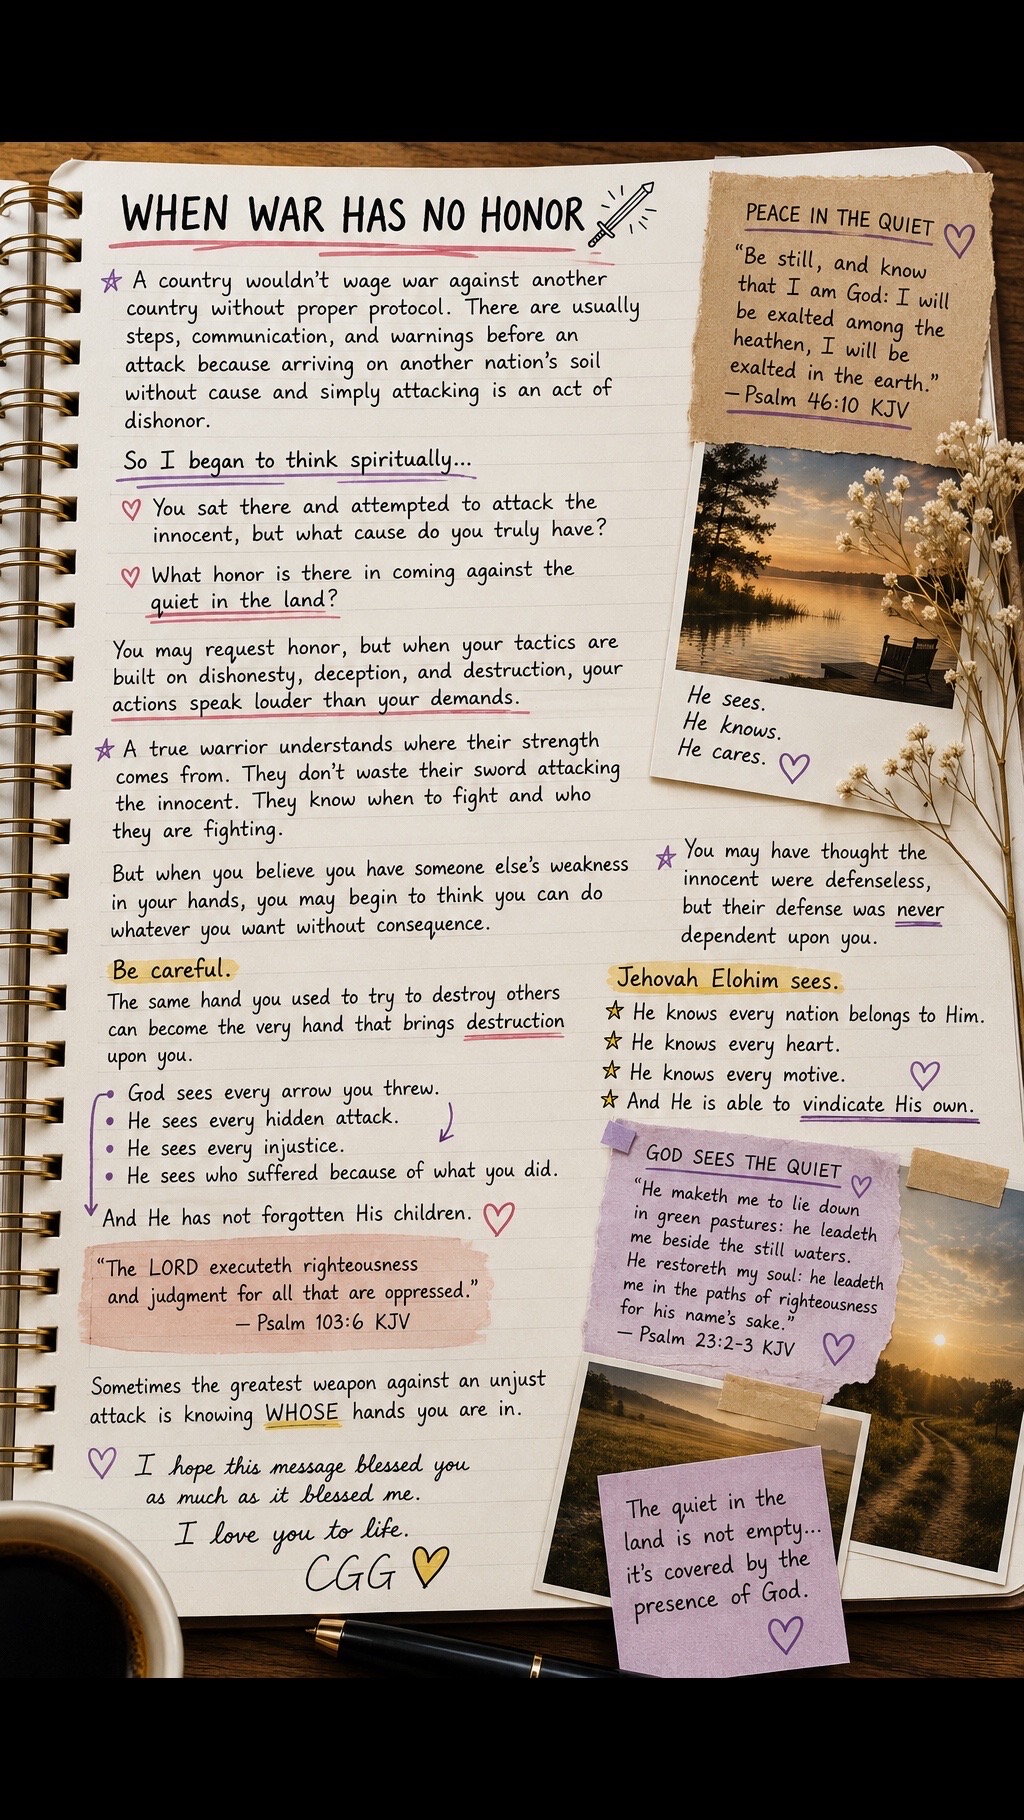 WHEN WAR HAS NO HONOR
A country wouldn't wage war against another
country without proper protocol. There are usually
steps, communication, and warnings before an
attack because arriving on another nation's soil
without cause and simply attacking is an act of
dishonor.
So I began to think spiritually...
You sat there and attempted to attack the
innocent, but what cause do you truly have?
What honor is there in coming against the
quiet in the land?
You may request honor, but when your tactics are
built on dishonesty, deception, and destruction, your
actions speak louder than your demands.
A true warrior understands where their strength
comes from. They don't waste their sword attacking
the innocent. They know when to fight and who
they are fighting.
But when you believe you have someone else's weakness
in your hands, you may begin to think you can do
whatever you want without consequence.
Be careful.
The same hand you used to try to destroy others
can become the very hand that brings destruction
upon you.
• God sees every arrow you threw.
• He sees every hidden attack.
• He sees every injustice.
• He sees who suffered because of what you did.
And He has not forgotten His children.
"The LORD executeth righteousness
and judgment for all that are oppressed."
— Psalm 103:6 KJV
Sometimes the greatest weapon against an unjust
attack is knowing WHOSE hands you are in.
I hope this message blessed you
as much as it blessed me.
I love you to life.
CGG
PEACE IN THE QUIET
"Be still, and know
that I am God: I will
be exalted among the
heathen, I will be
exalted in the earth."
— Psalm 46:10 KJV
He sees.
He knows.
He cares.
You may have thought the
innocent were defenseless,
but their defense was never
dependent upon you.
Jehovah Elohim sees.
He knows every nation belongs to Him.
He knows every heart.
He knows every motive.
And He is able to vindicate His own.
GOD SEES THE QUIET
"He maketh me to lie down
in green pastures: he leadeth
me beside the still waters.
He restoreth my soul: he leadeth
me in the paths of righteousness
for his name's sake."
— Psalm 23:2-3 KJV
The quiet in the
land is not empty...
it's covered by the
presence of God.